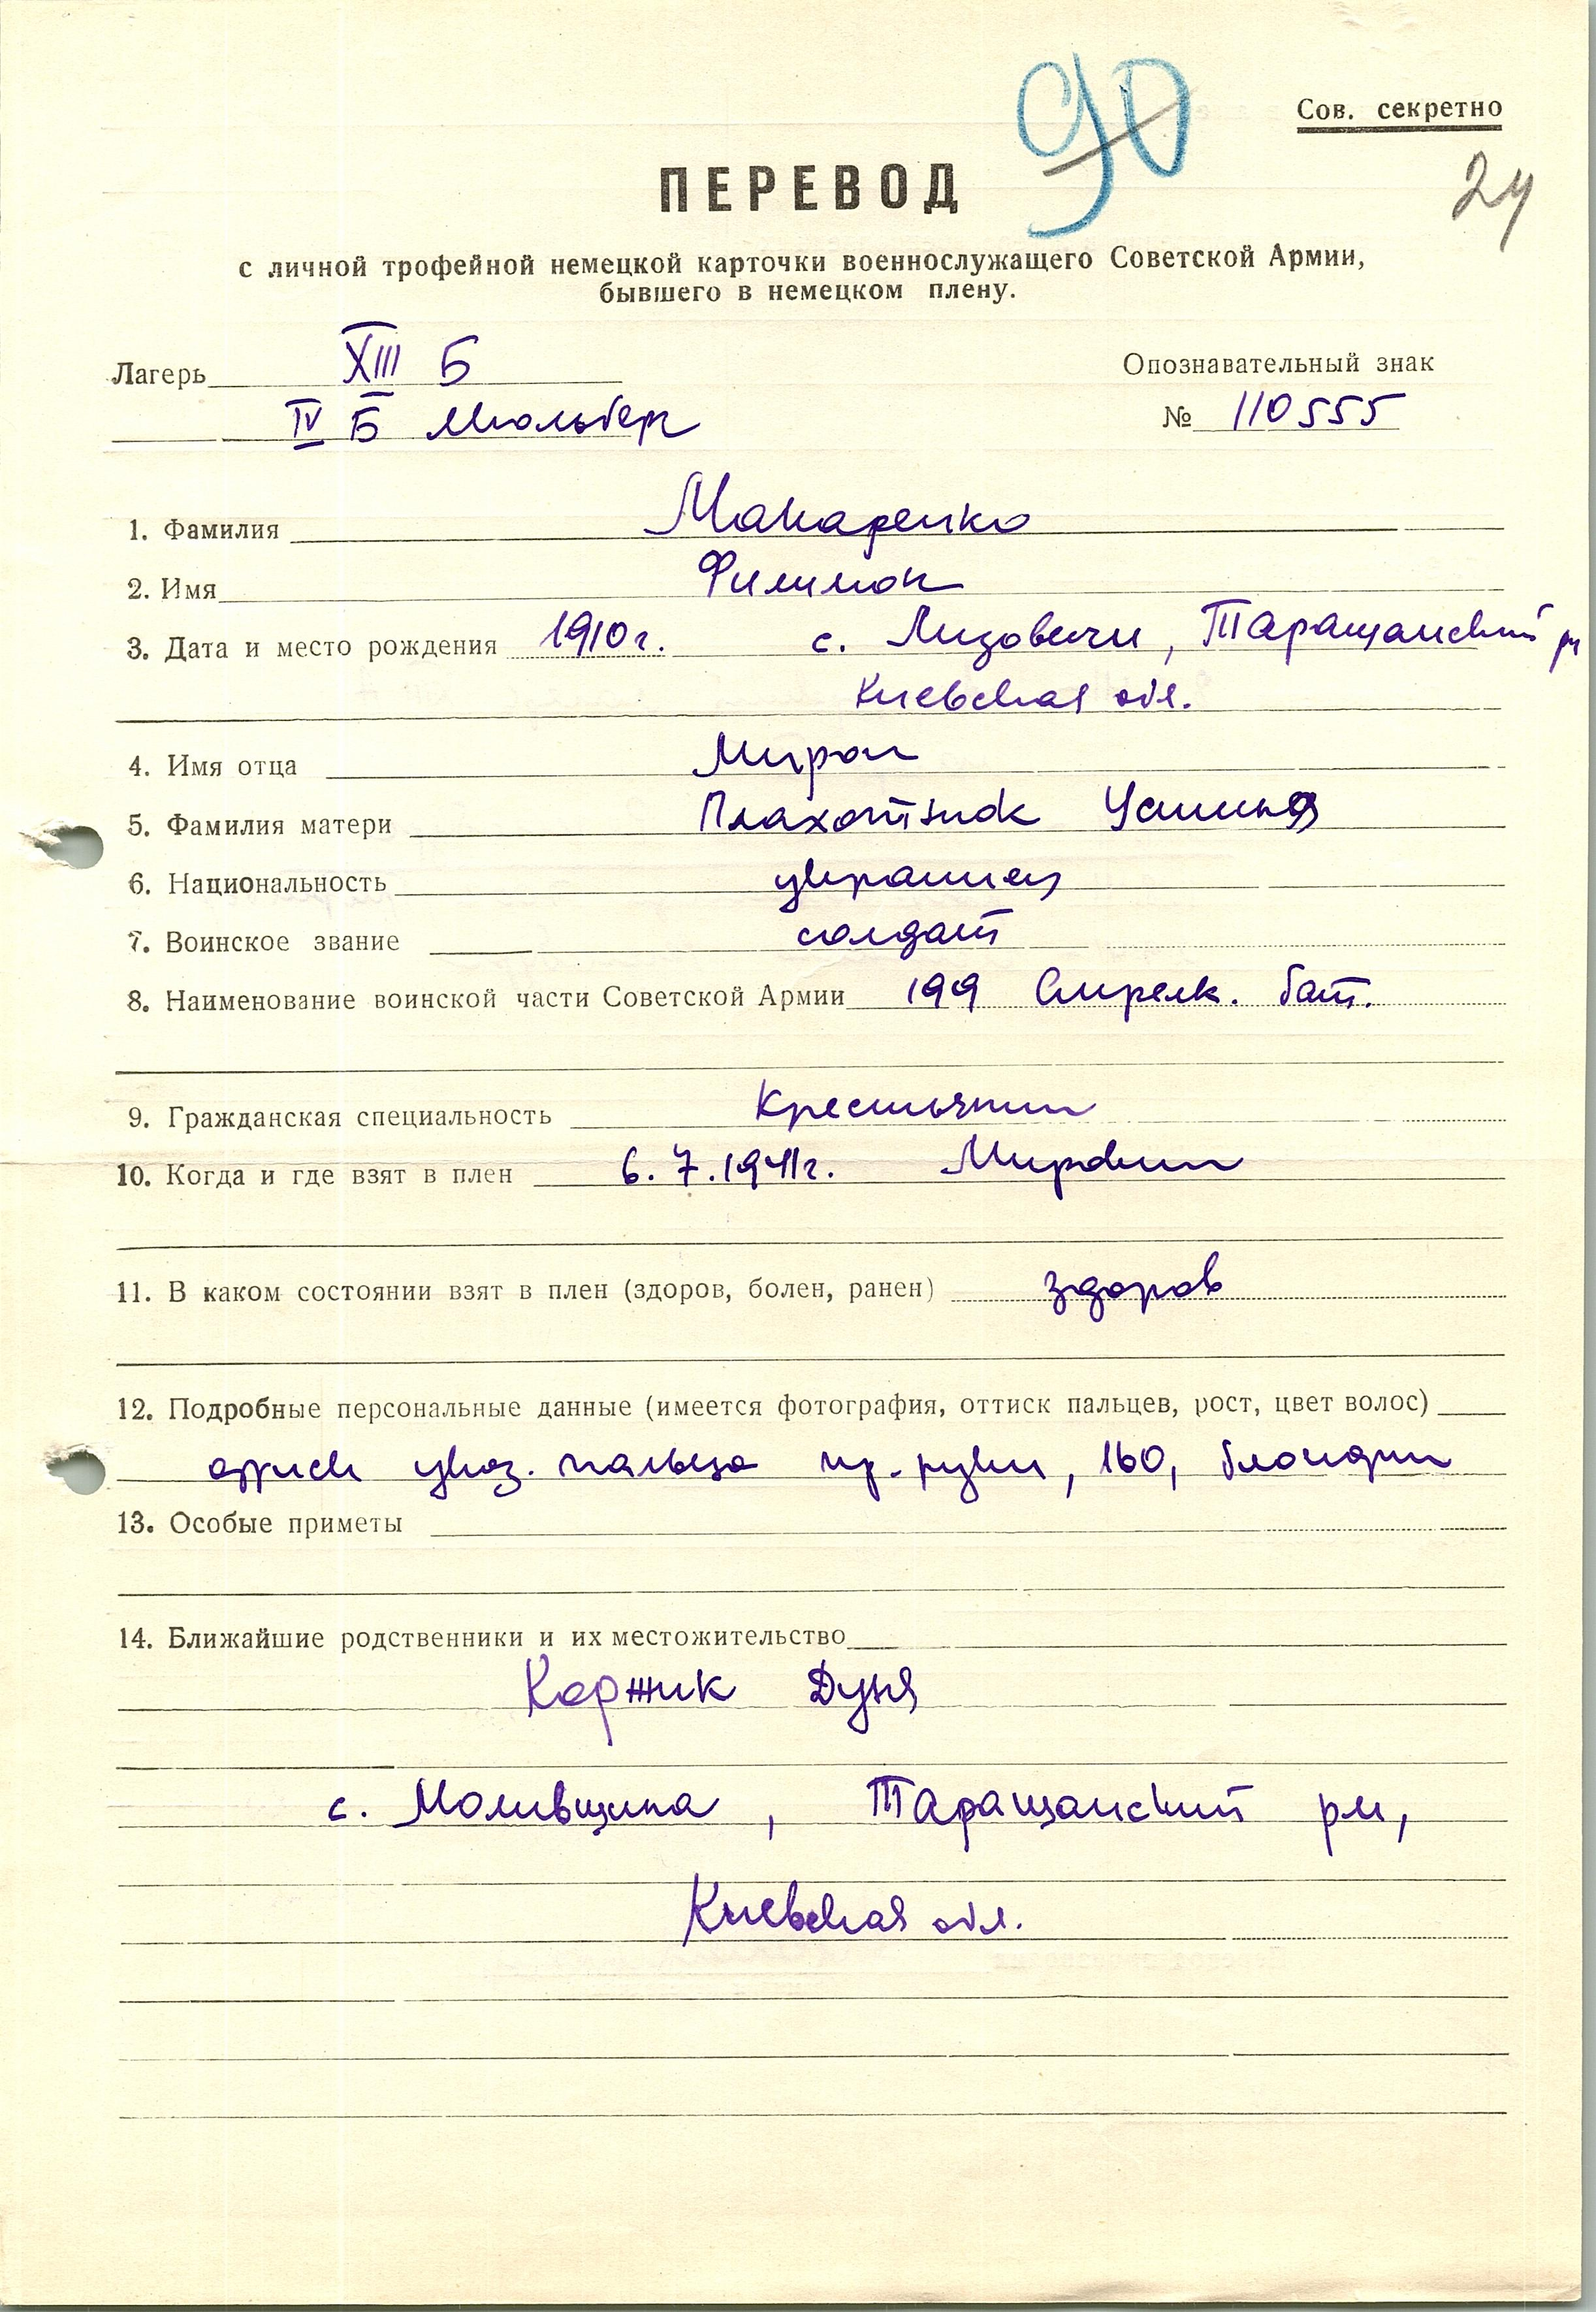 90
Сов. секретно
24
ПЕРЕВОД
с личной трофейной немецкой карточки военнослужащего Советской Армии,
бывшего в немецком плену.
Лагерь XIII Б
Опознавательный знак
IV Б Мюльберг
№ 110555
1. Фамилия Макаренко
2. Имя Филимон
3. Дата и место рождения 1910 г. с. Лизовичи, Таращанский рн
Киевская обл.
4. Имя отца Мирон
5. Фамилия матери Плахотнюк Устинья
6. Национальность украинец
7. Воинское звание солдат
8. Наименование воинской части Советской Армии 199 Стрелк. бат.
9. Гражданская специальность Крестьянин
10. Когда и где взят в плен 6.7.1941г.
11. В каком состоянии взят в плен (здоров, болен, ранен) здоров
12. Подробные персональные данные (имеется фотография, оттиск пальцев, рост, цвет волос)
оттиск указ. пальца пр. руки, 160, блондин
13. Особые приметы
14. Ближайшие родственники и их местожительство
Коржик Дуня
с. Моливщина, Таращанский рн,
Киевская обл.